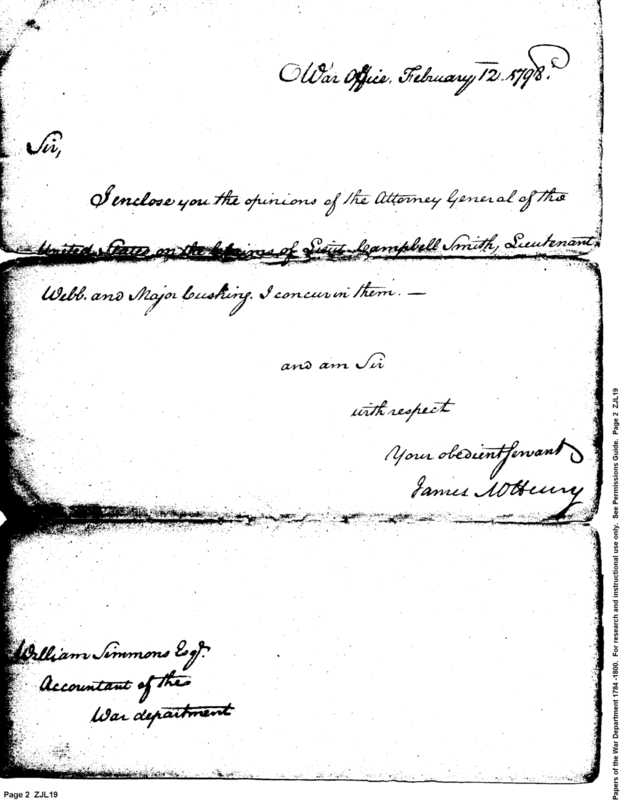 War Office. February 12. 1798.
Sir,
I enclose you the opinions of the Attorney General of the
United States on the Claims of Lieut. Campbell Smith, Lieutenant
Webb. and Major Cushing. I concur in them. —
and am Sir
with respect
Your obedient Servant
James McHenry
William Simmons Esqr.
Accountant of the
War department
Page 2 ZJL19
Papers of the War Department 1784 -1800. For research and instructional use only. See Permissions Guide. Page 2 ZJL19